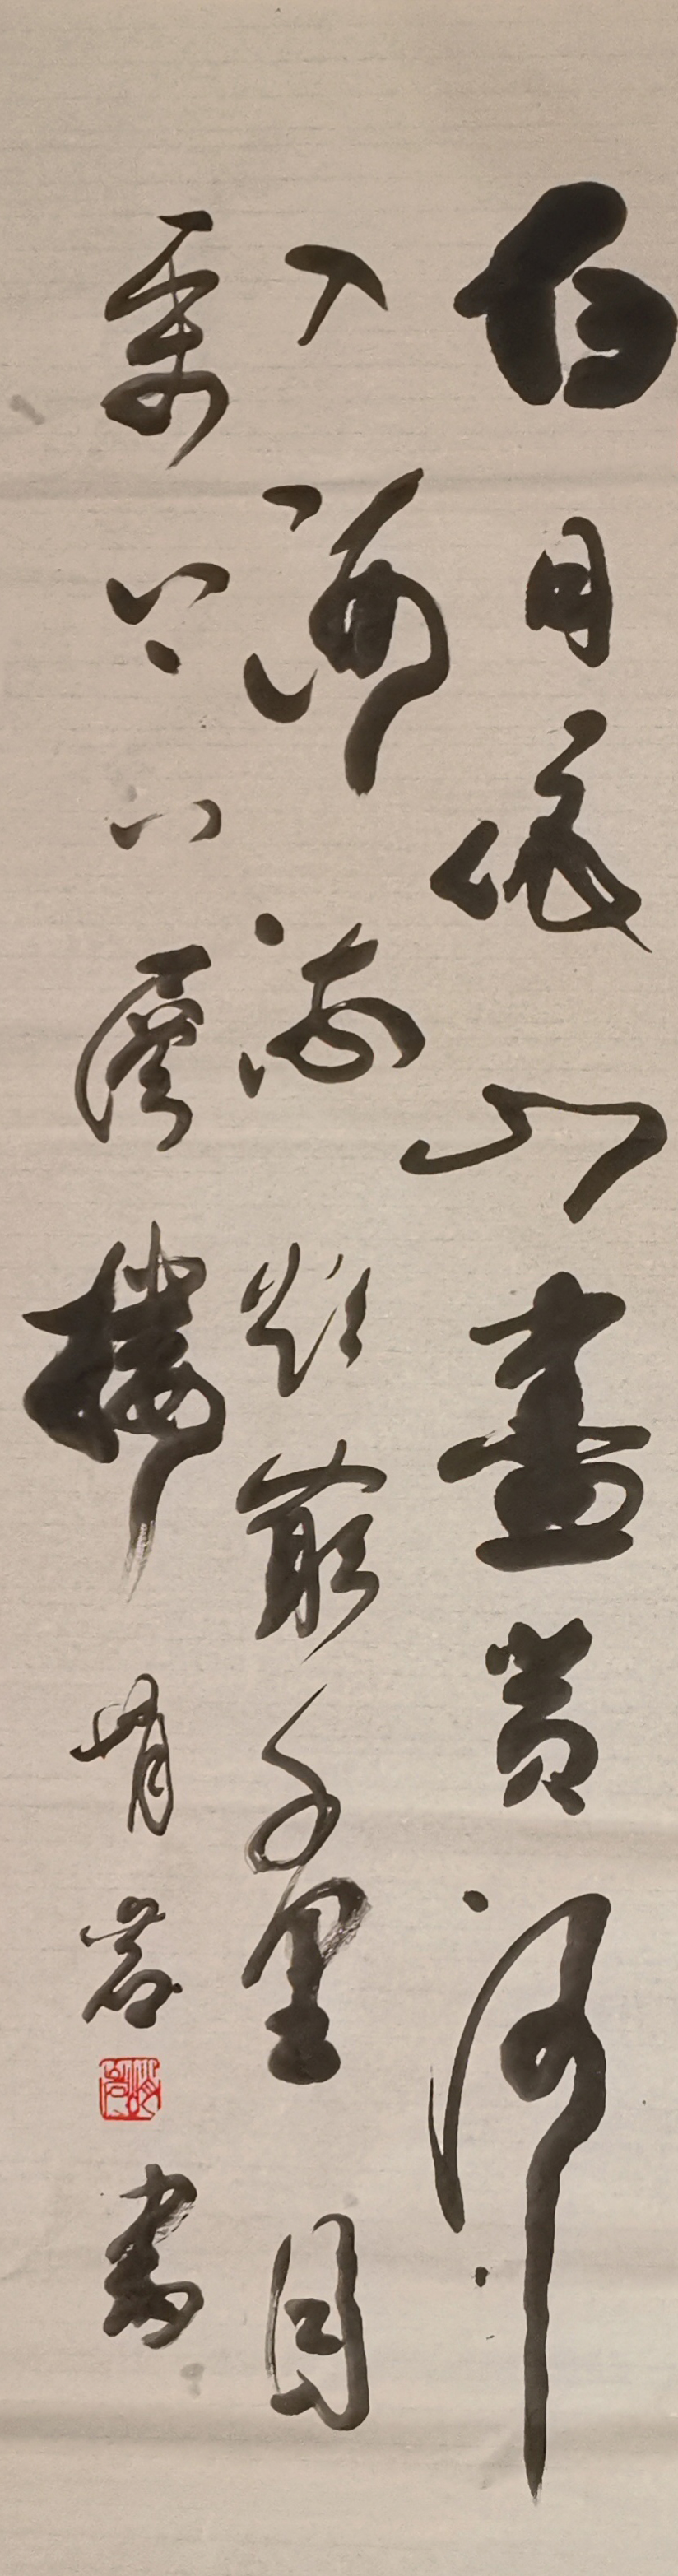 白日依山盡黃河
入海流欲窮千里目
更上一層樓峭岩書